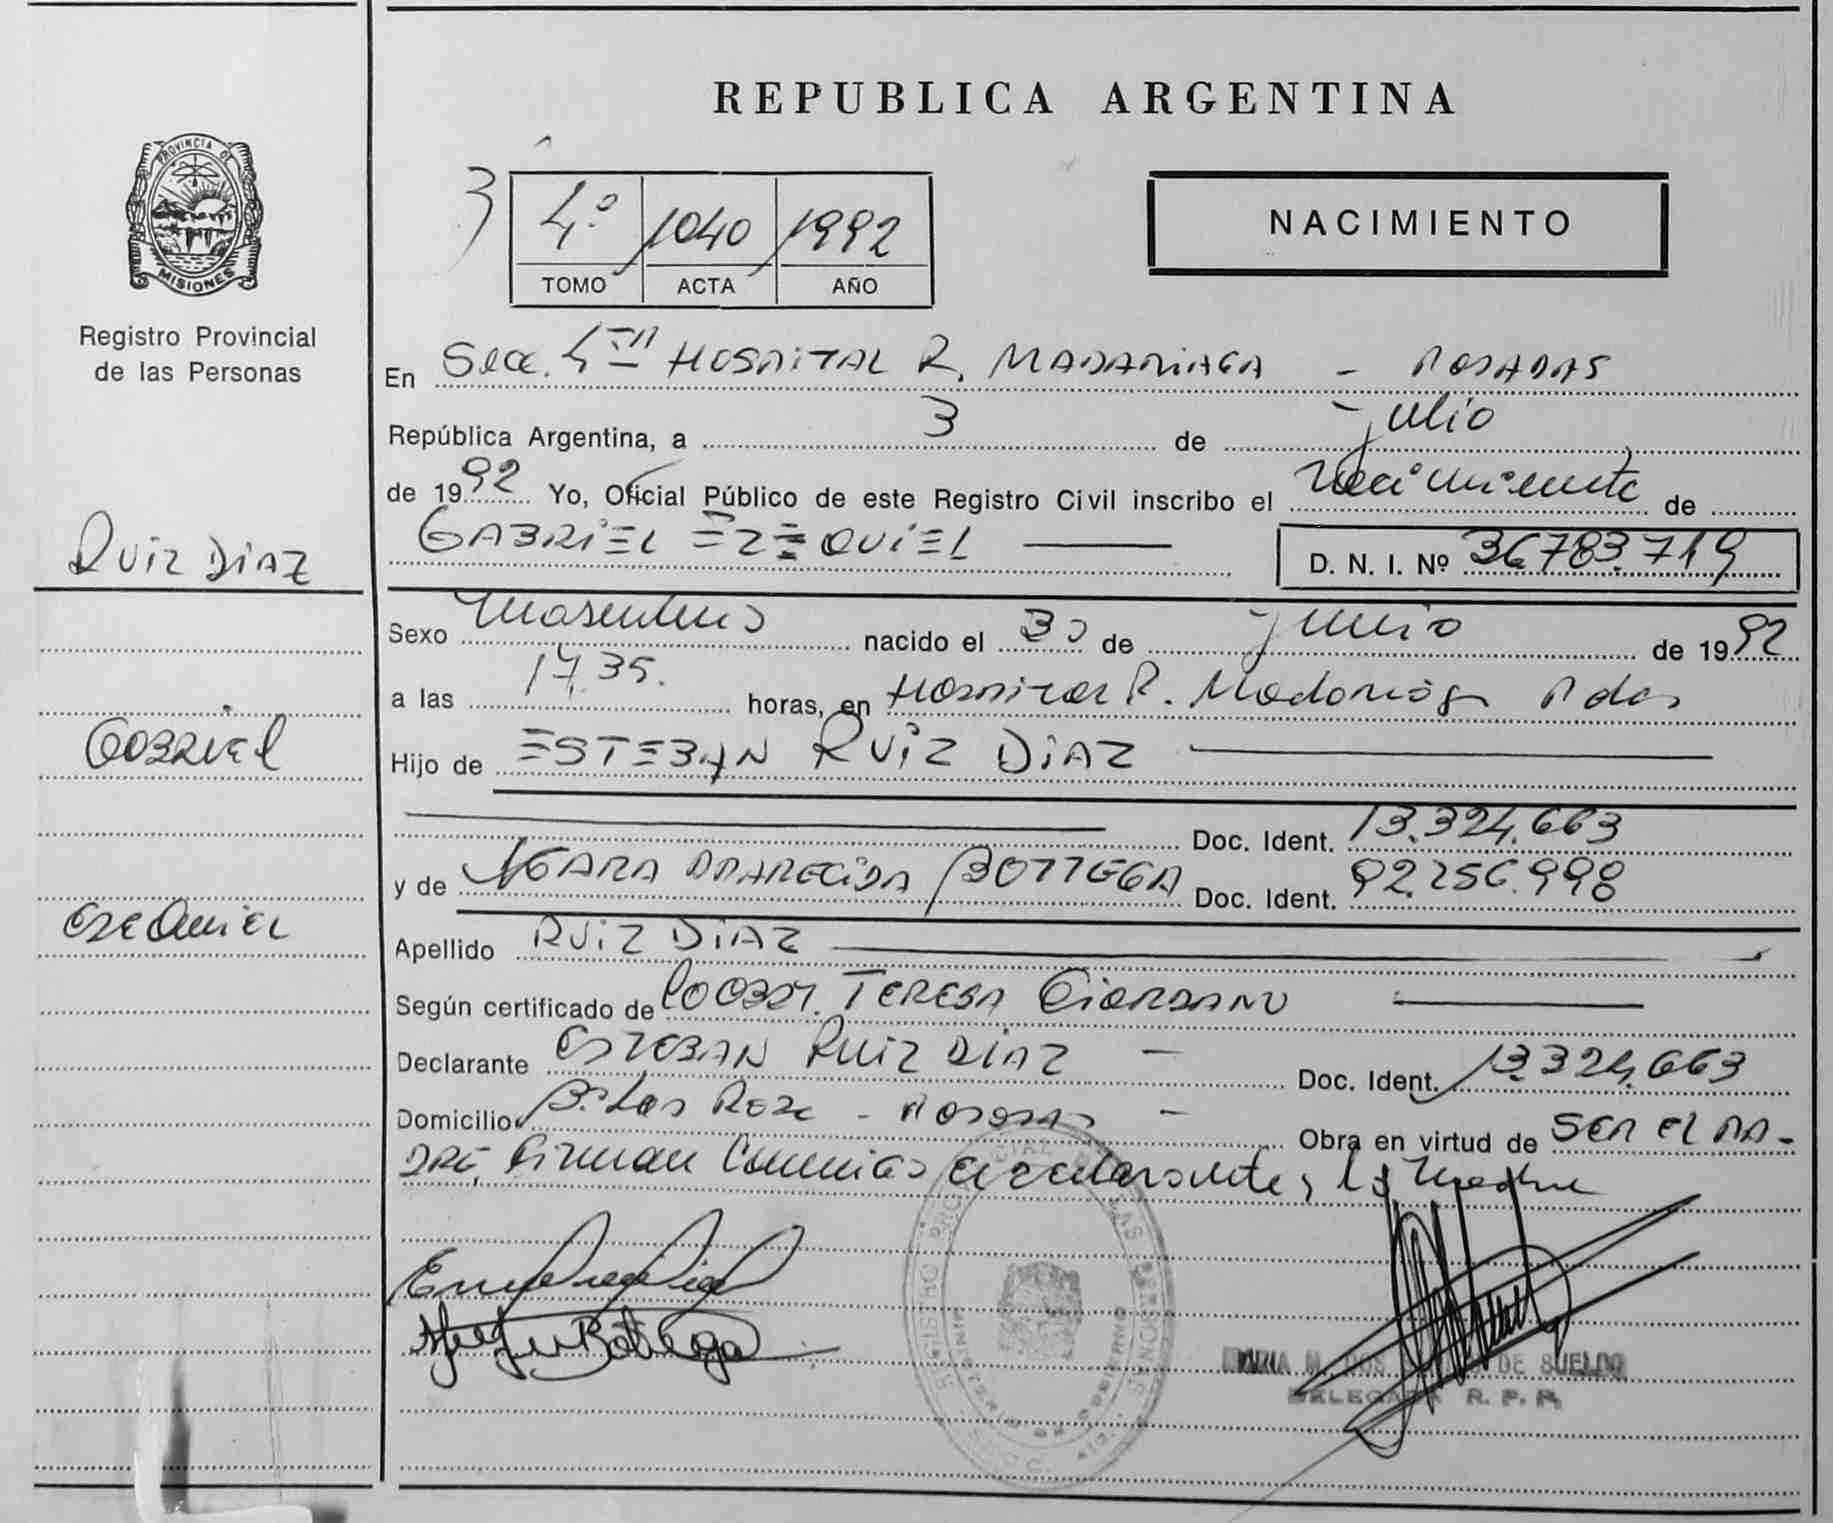 REPUBLICA ARGENTINA
PROVINCIA DE
MISIONES
Registro Provincial
de las Personas
3
4º 1040 1992
TOMO ACTA AÑO
NACIMIENTO
En Secc. 4ta HOSPITAL R. MADARIAGA - POSADAS
República Argentina, a 3 de julio
de 1992 Yo, Oficial Público de este Registro Civil inscribo el nacimiento de
GABRIEL EZEQUIEL
D. N. I. Nº 36.783.719
RUIZ DIAZ
Gabriel
Ezequiel
Sexo Masculino nacido el 30 de junio de 1992
a las 17,35. horas, en Hospital R. Madariaga Pdas
Hijo de ESTEBAN RUIZ DIAZ
Doc. Ident. 13.324.663
y de APARECIDA BOTTEGA Doc. Ident. 92.256.998
Apellido RUIZ DIAZ
Según certificado de TERESA GIORDANO
Declarante ESTEBAN RUIZ DIAZ - Doc. Ident. 13.324.663
Domicilio Bº Las Rosas - POSADAS - Obra en virtud de SER EL PA-
DRE, Firman la madre
REGISTRO PROVINCIAL DE LAS PERSONAS
MINISTERIO DE GOBIERNO
MARIA M. DOS DE SUELDO
DELEGADA R. P. P.